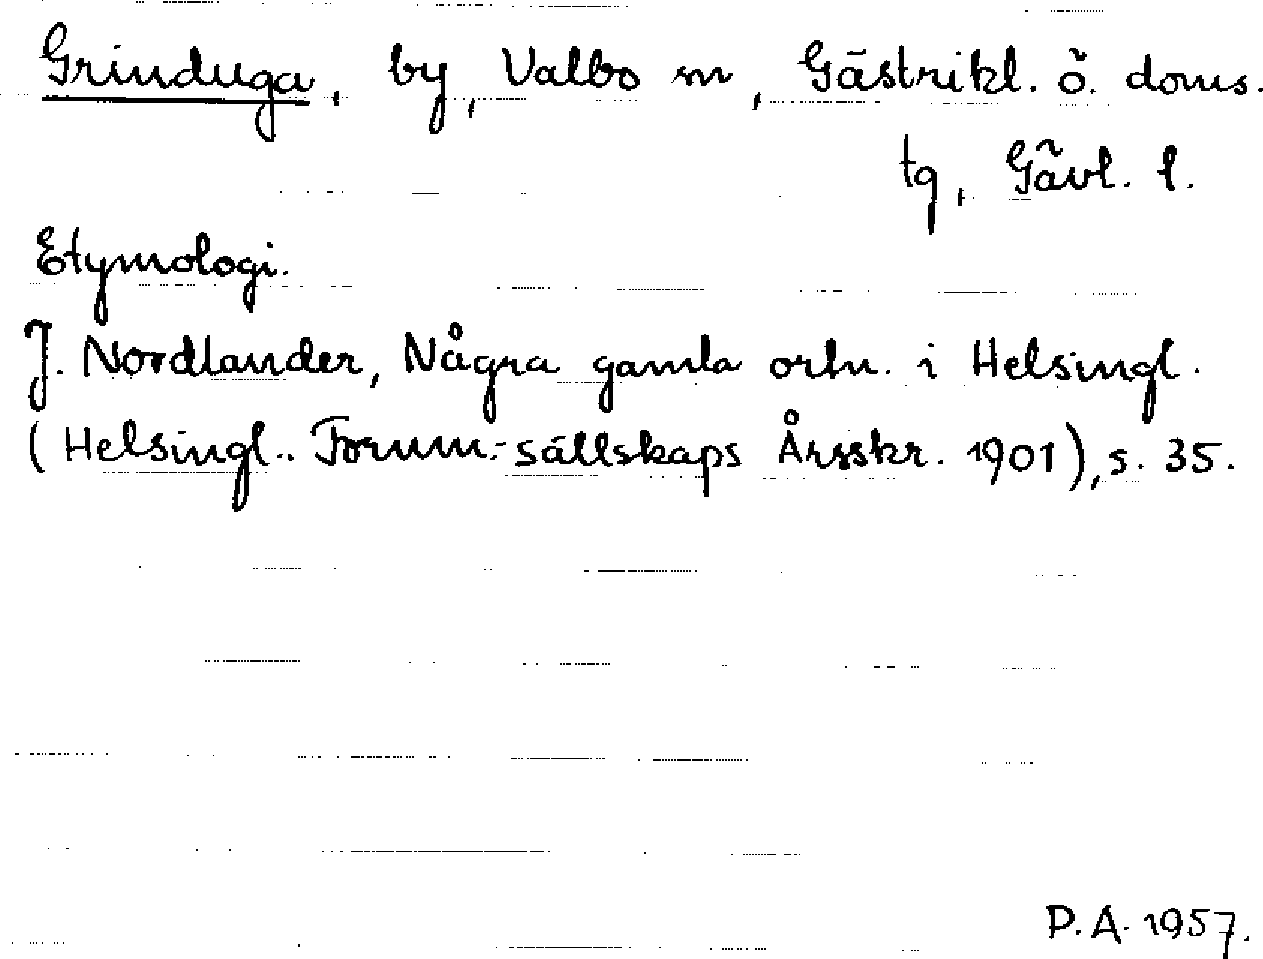 Grinduga, by, Valbo sn, Gästrikl. ö. doms.
tg, Gävl. l.
Etymologi.
J. Nordlander, Några gamla ortn. i Helsingl.
(Helsingl.. Fornm.-sällskaps Årsskr. 1901), s. 35.
P.A. 1957.